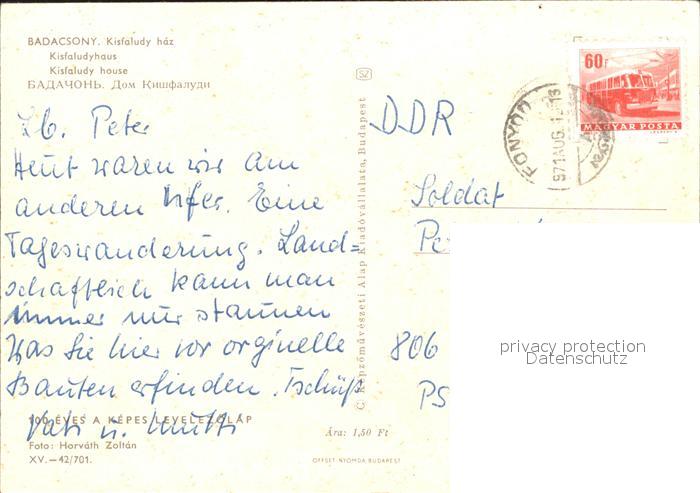 BADACSONY. Kisfaludy ház
Kisfaludyhaus
Kisfaludy house
БАДАЧОНЬ. Дом Кишфалуди
Lb. Peter
Heut waren wir am
anderen Ufer. Eine
Tageswanderung. Land=
schaftlich kann man
immer nur staunen
Was Sie hier vor orginelle
Bauten erfinden. Tschüß
Vati u. Mutti
100 ÉVES A KÉPES LEVELEZŐLAP
Foto: Horváth Zoltán
XV.—42/701.
Ára: 1,50 Ft
OFFSET-NYOMDA BUDAPEST
Képzőművészeti Alap Kiadóvállalata, Budapest
SZ
60f
MAGYAR POSTA
FONYÓD
971 AUG. 1
DDR
Soldat
Pe
806
PS
privacy protection
Datenschutz